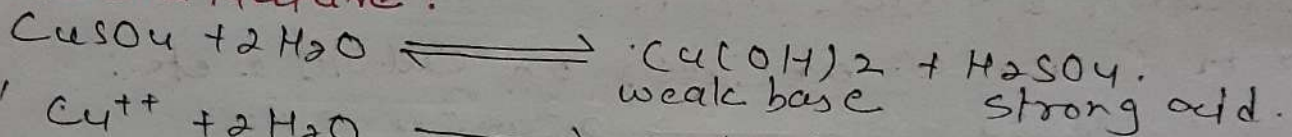 CuSO4 + 2H2O ⇌ Cu(OH)2 + H2SO4.
weak base strong acid.
Cu++ + 2H2O